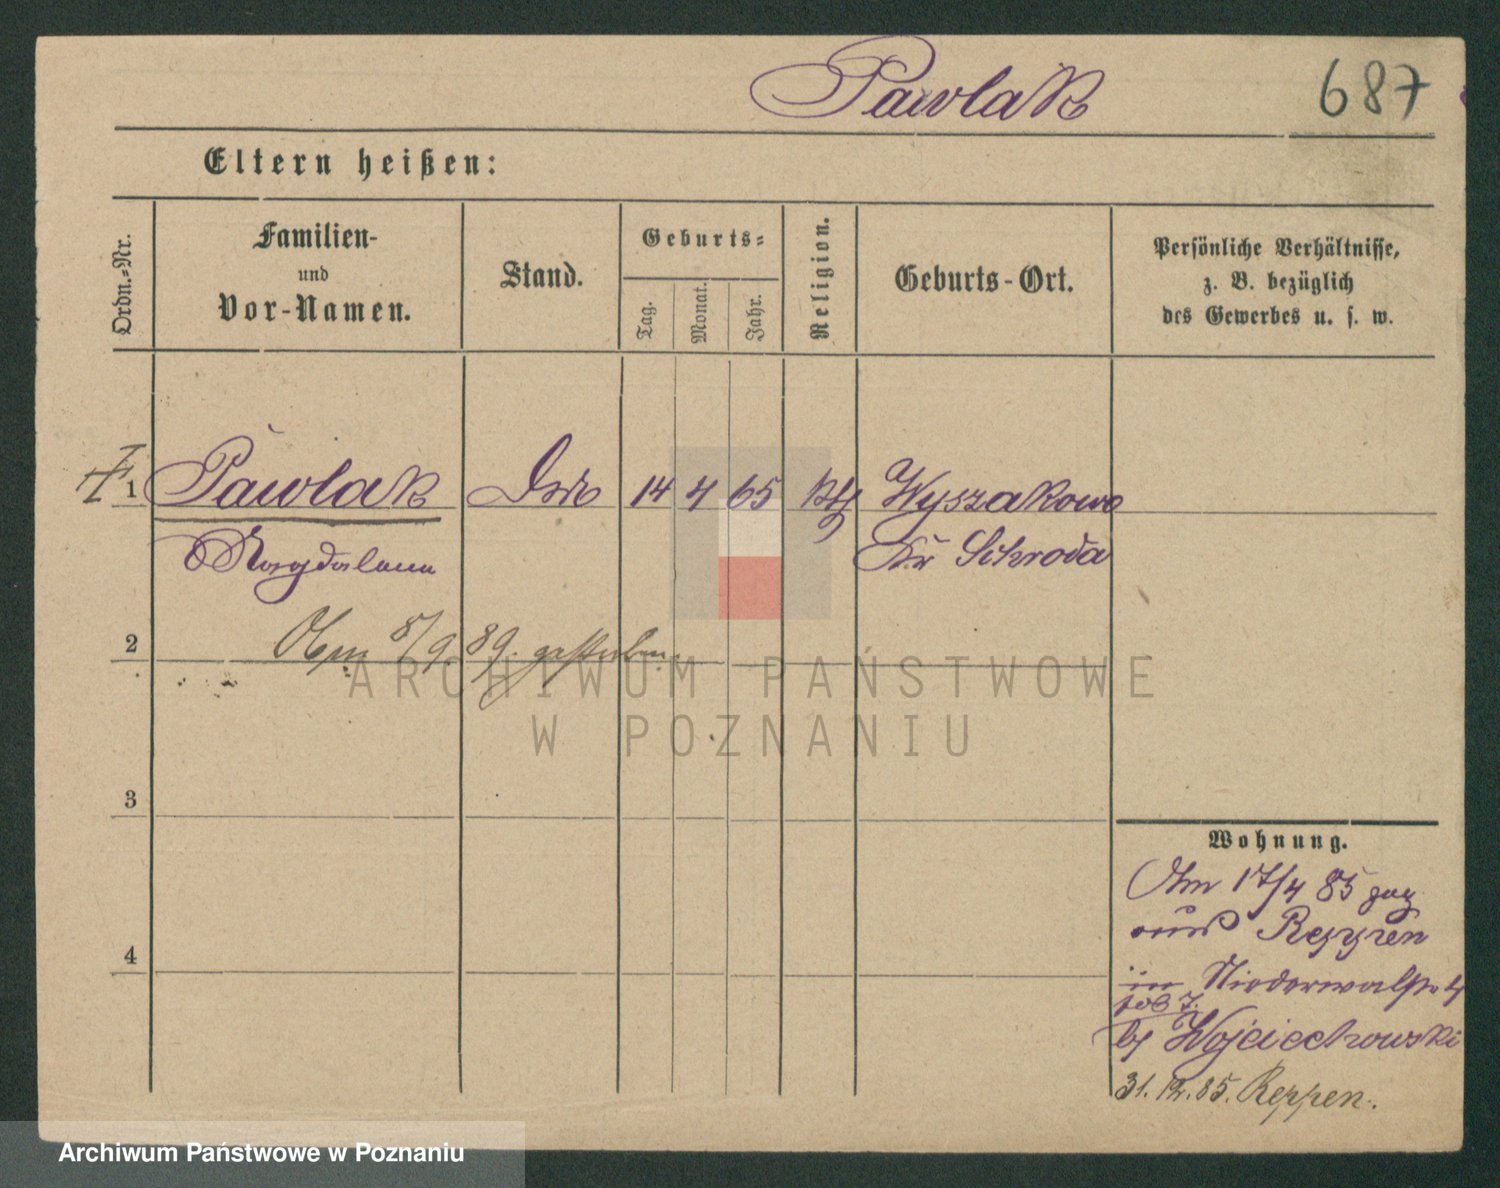 Pawlak
687
Eltern heißen:
Ordn.-Nr.
Familien-
und
Vor-Namen.
Stand.
Geburts-
Tag.
Monat.
Jahr.
Religion.
Geburts-Ort.
Persönliche Verhältnisse,
z. B. bezüglich
des Gewerbes u. s. w.
1 Pawlak 14 4 65 kth Wyszakowo
Magdalena Kr Schroda
2 8/9 89. gestorben.
3
4
Wohnung.
Am 17/4 85 zug
aus Reppen
in Niederwallstr 4
by Wojciechowski
31.12.85. Reppen.
ARCHIWUM PAŃSTWOWE
W POZNANIU
Archiwum Państwowe w Poznaniu